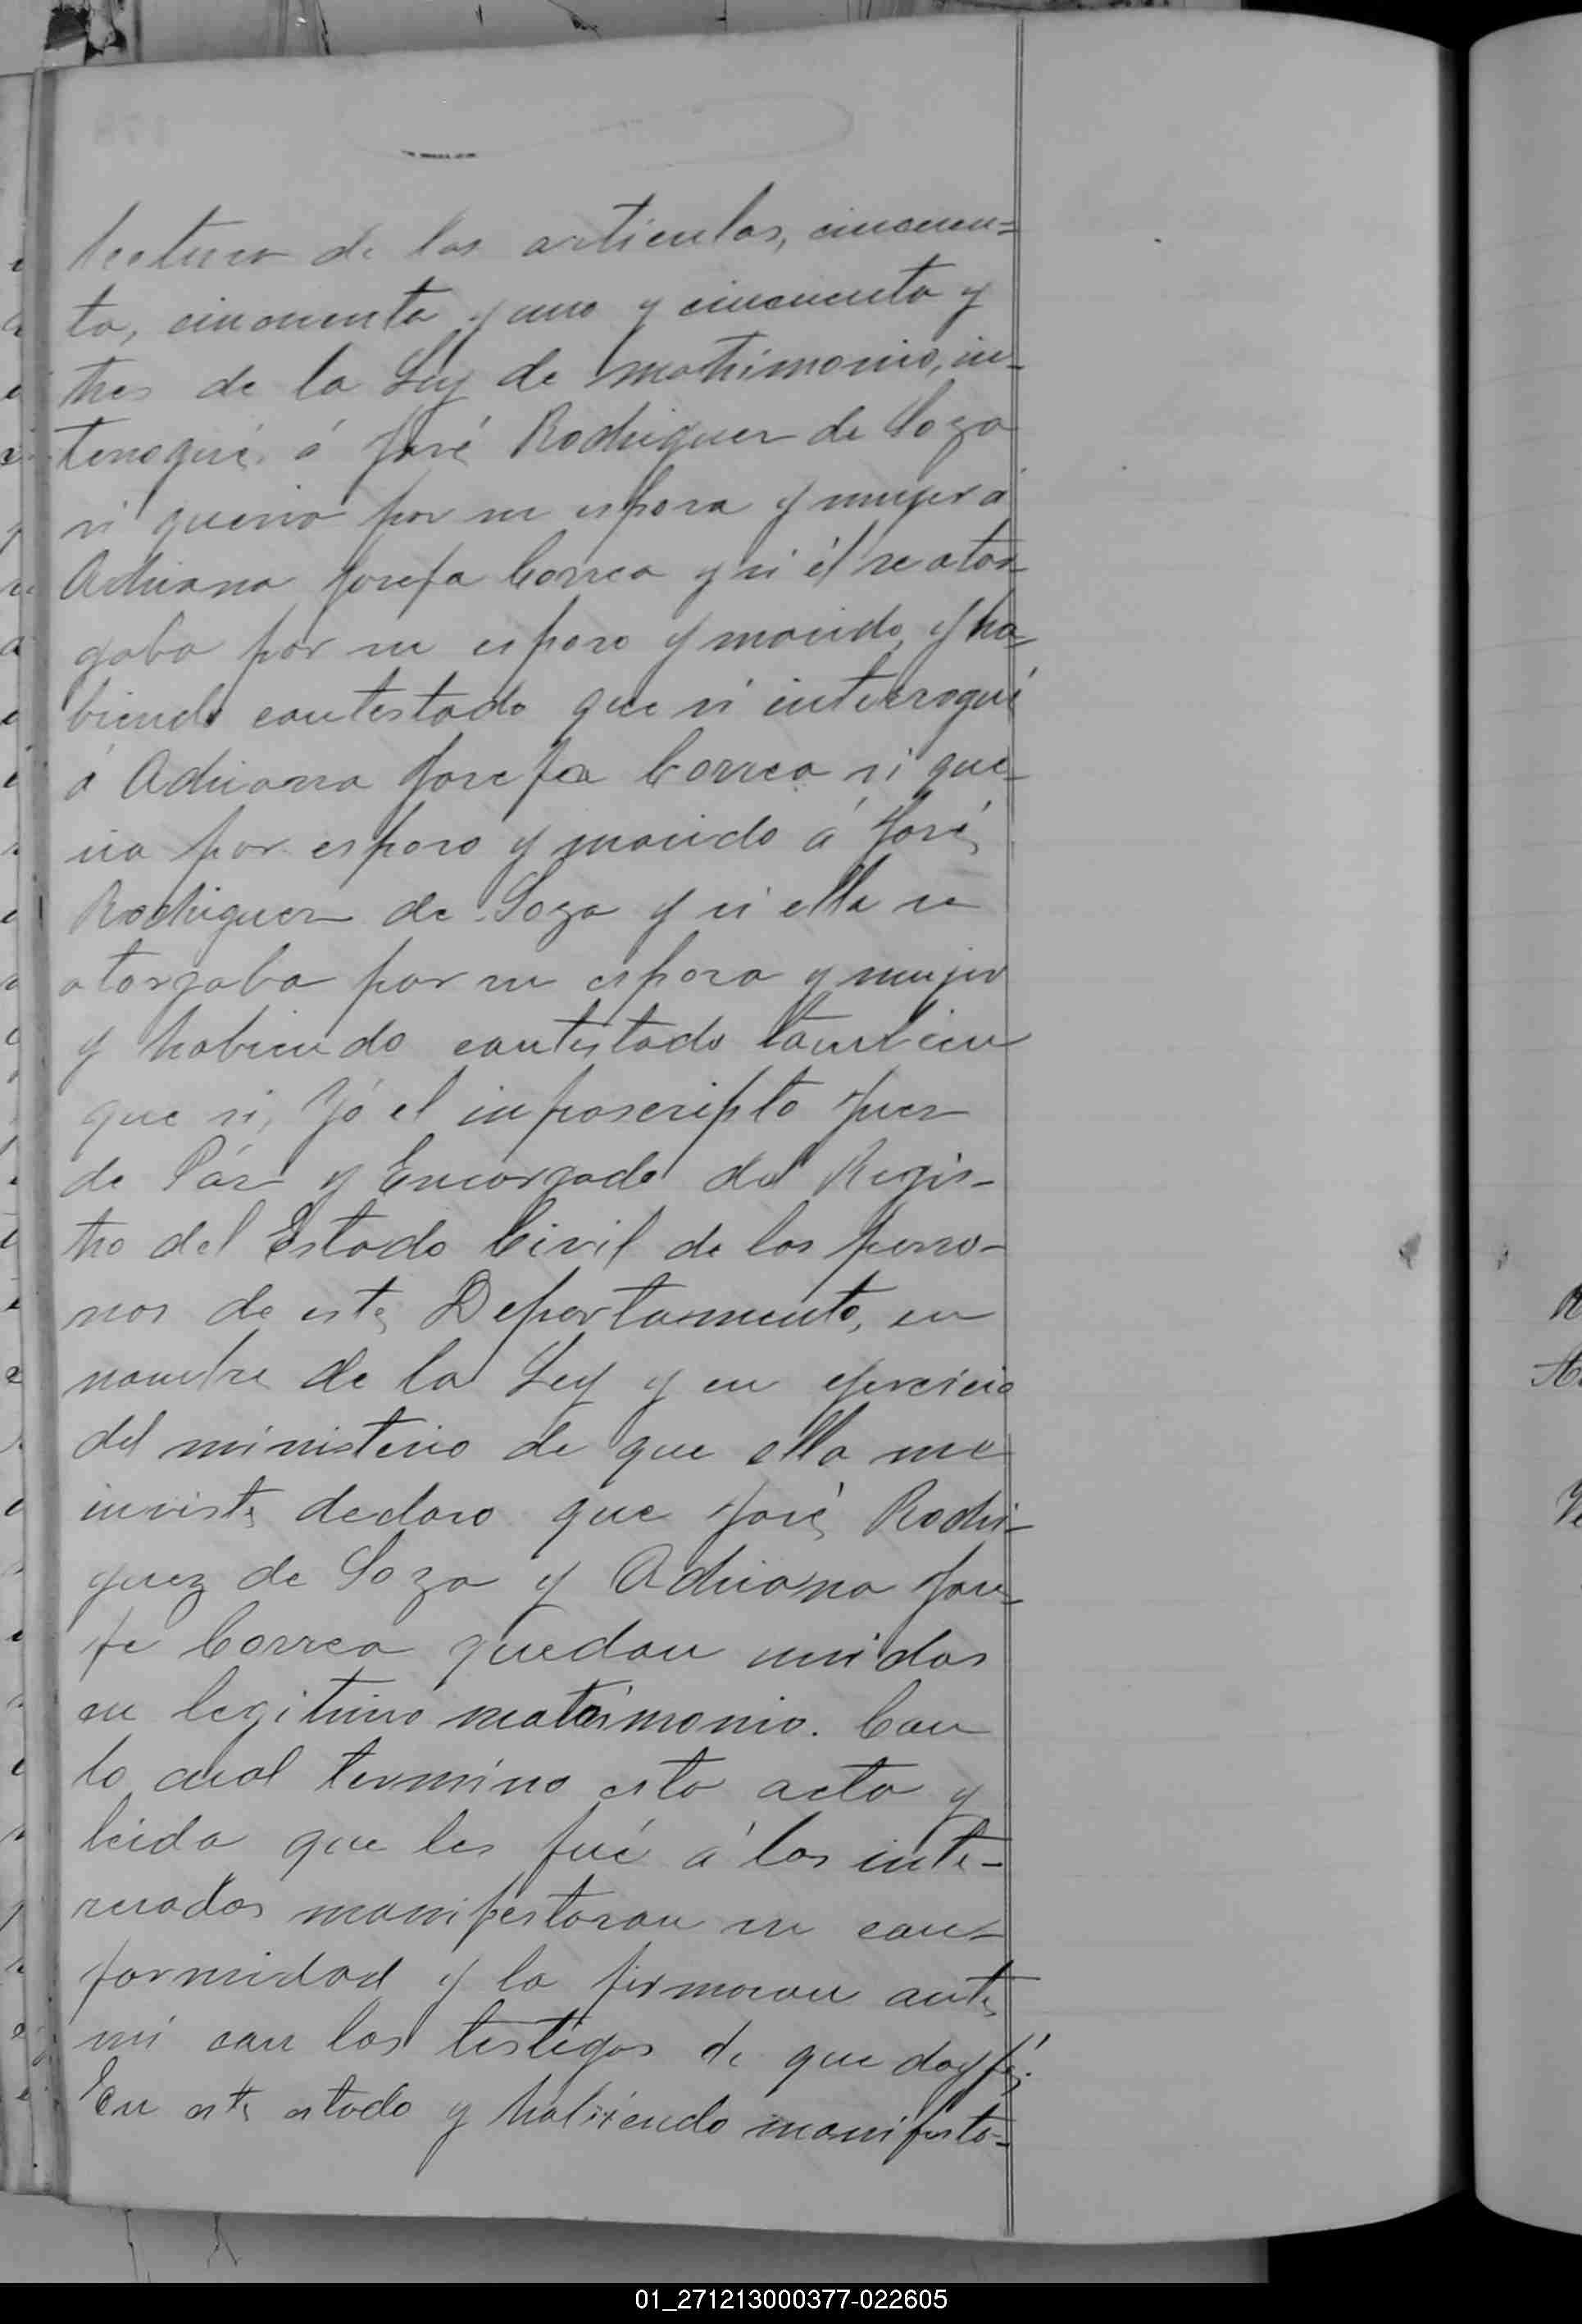 lectura de los articulos, cincuen=
ta, cincuenta y uno y cincuenta y
tres de la Ley de matrimonio, in-
terrogué á José Rodriguez de Soza
si queria por su esposa y mujer á
Adriana Josefa Correa y si él se otor-
gaba por su esposo y marido, y ha-
biendo contestado que si interrogué
á Adriana Josefa Correa si que-
ria por esposo y marido á José
Rodriguez de Soza y si ella se
otorgaba por su esposa y mujer
y habiendo contestado tambien
que si, Yó el infrascripto Juez
de Páz y Encargado del Regis-
tro del Estado Civil de las perso-
nas de este Departamento, en
nombre de la Ley y en ejercicio
del ministerio de que ella me
inviste declaro que José Rodri-
guez de Soza y Adriana Jose-
fa Correa quedan unidos
en legitimo matrimonio. Con
lo cual termino esta acta y
leida que les fué á los inte-
resados manifestaron su con-
formidad y la firmaron ante
mi con los testigos de que doy fé.
En este estado y habiendo manifesta-
01_271213000377-022605